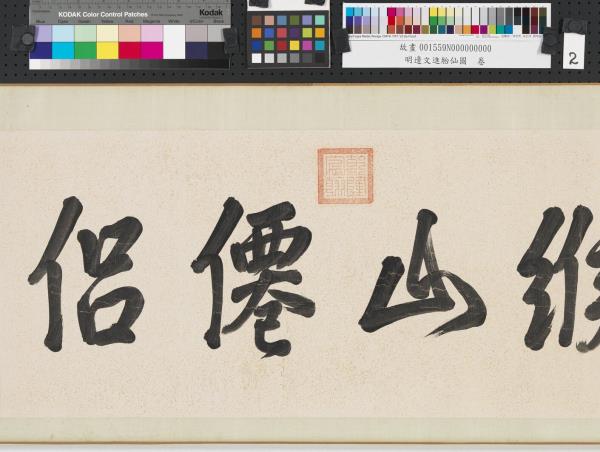 KODAK Color Control Patches
Kodak
Blue Cyan Green Yellow Red Magenta White 3/Color Black
故畫 001559N000000000
明邊文進胎仙圖 卷
2
緱山僊侶